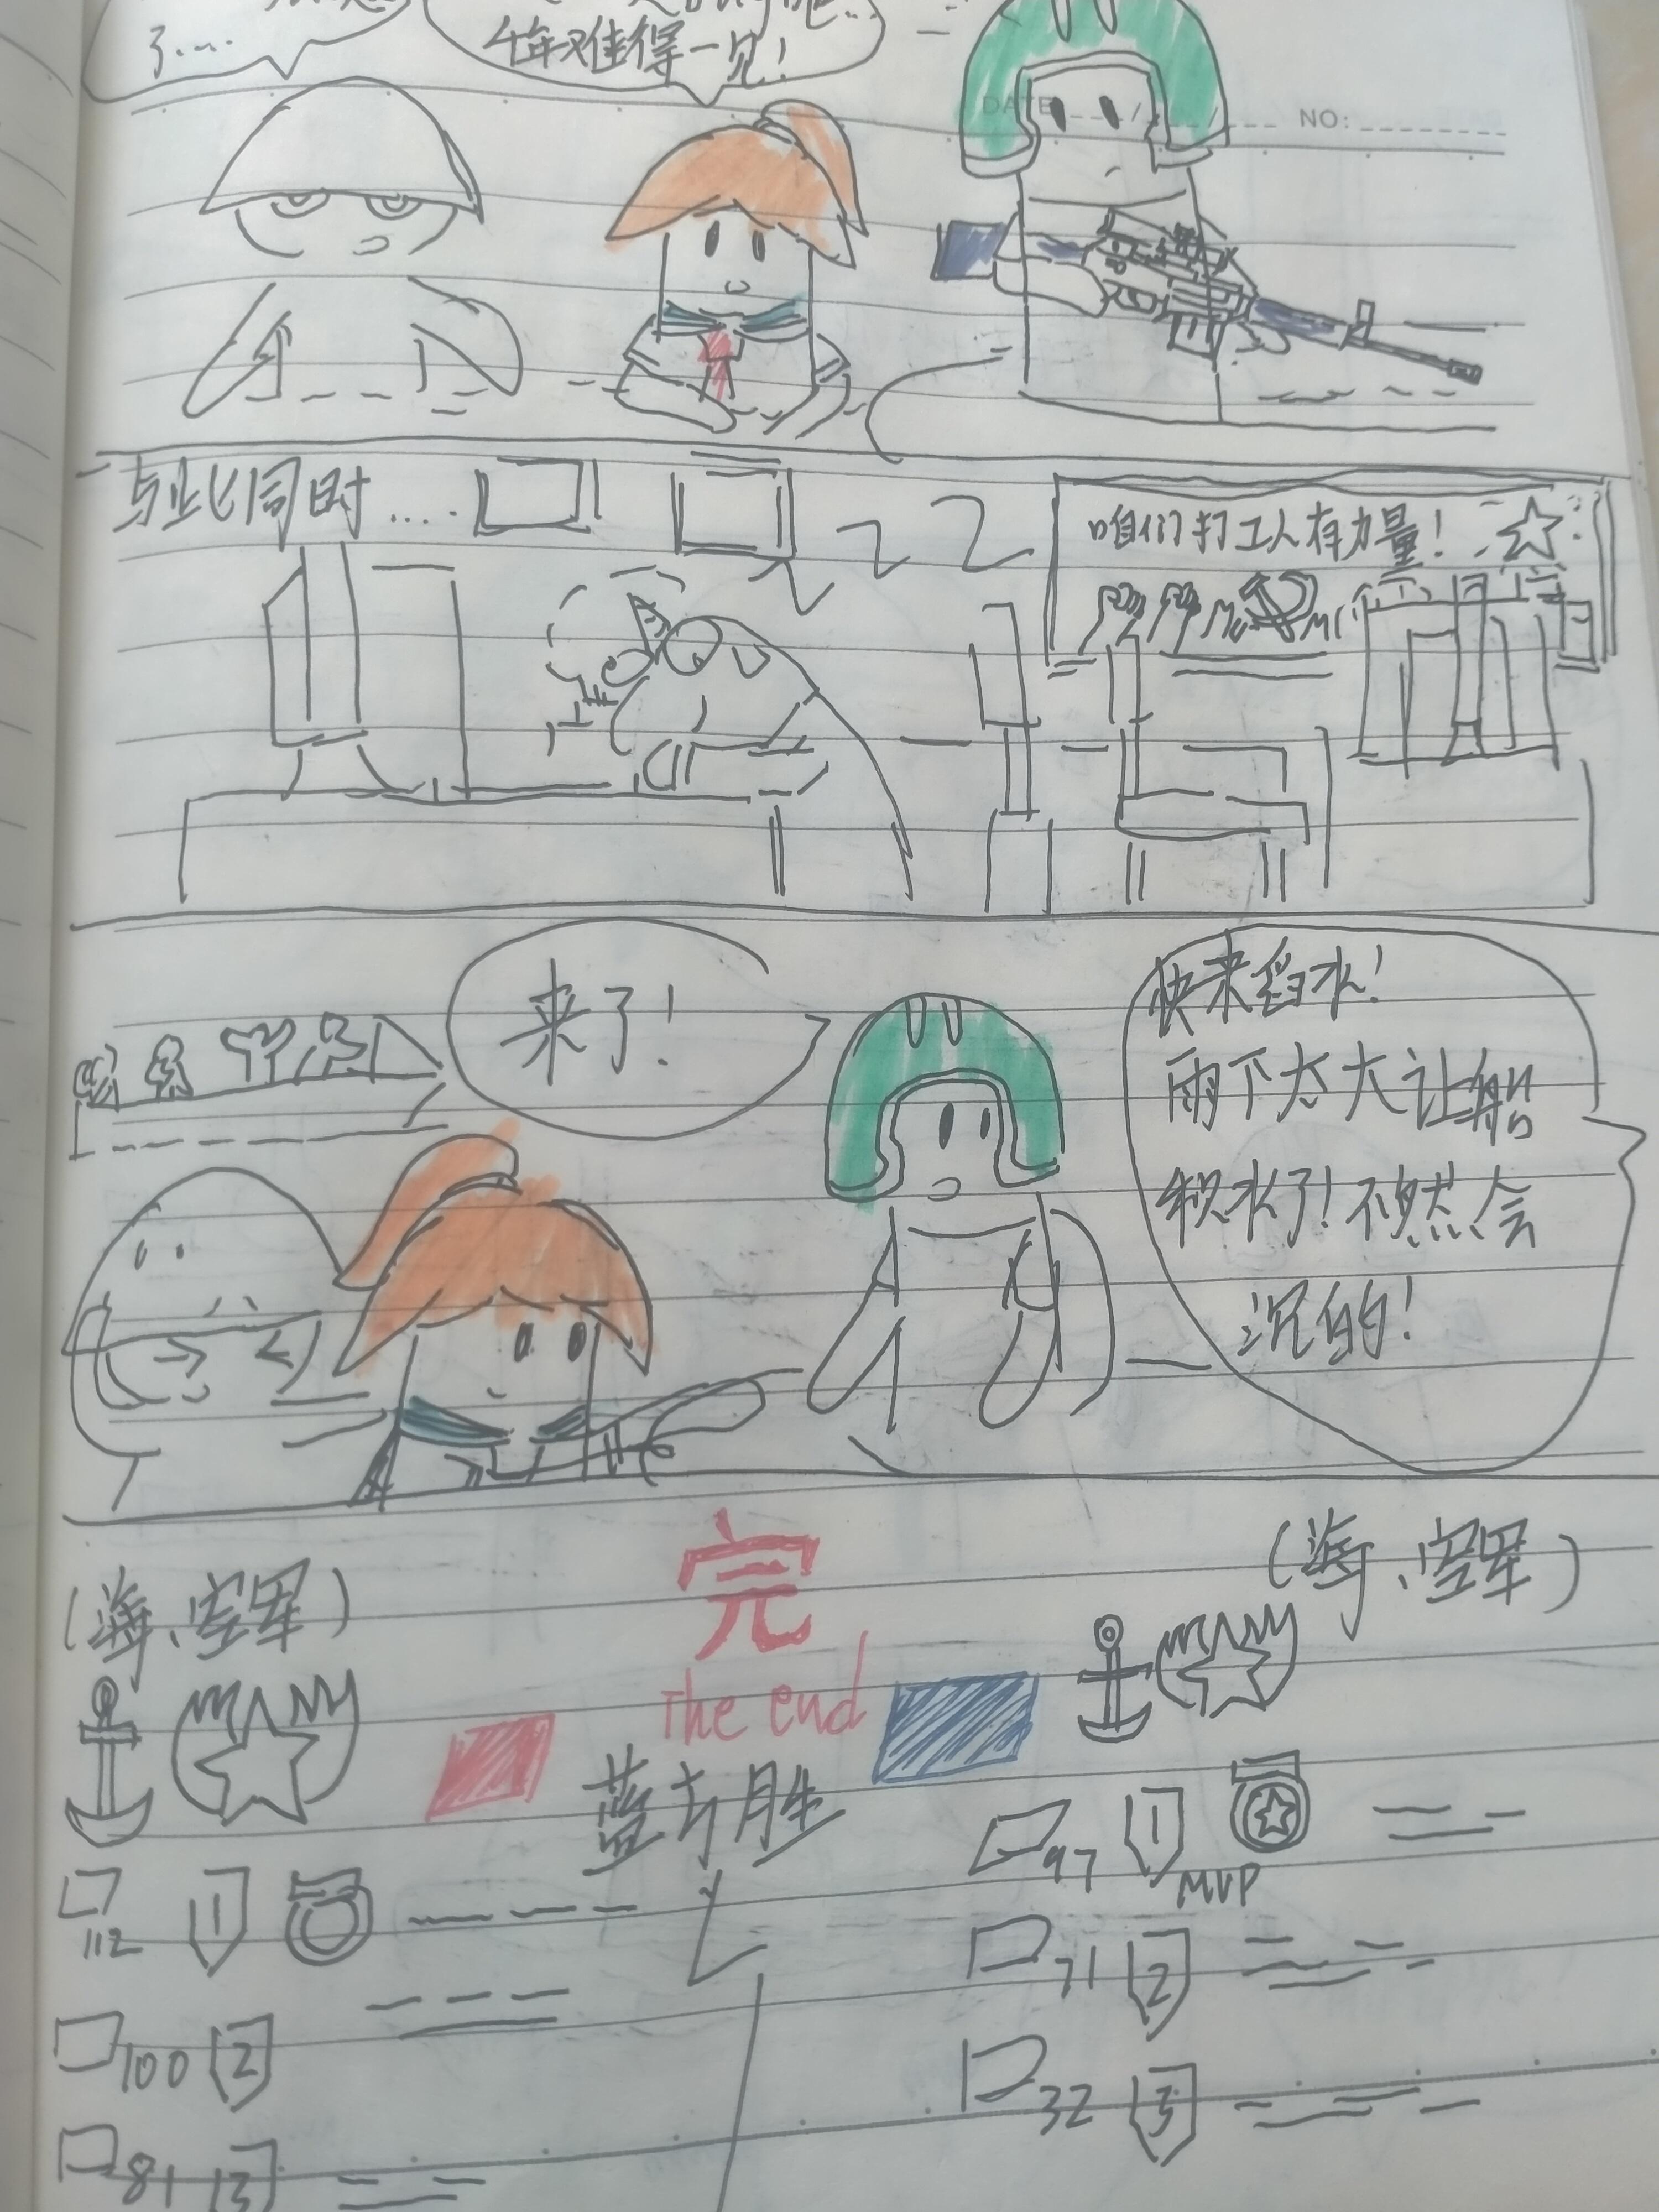 了....
年难得一见！
DATE
NO:
与此同时....
咱们打工人有力量！
来了！
快来舀水！
雨下太大让船
积水了！不然会
沉的！
完
The end
(海、空军)
(海、空军)
蓝方胜
97
1
MVP
112
1
71
2
100
2
32
3
81
3